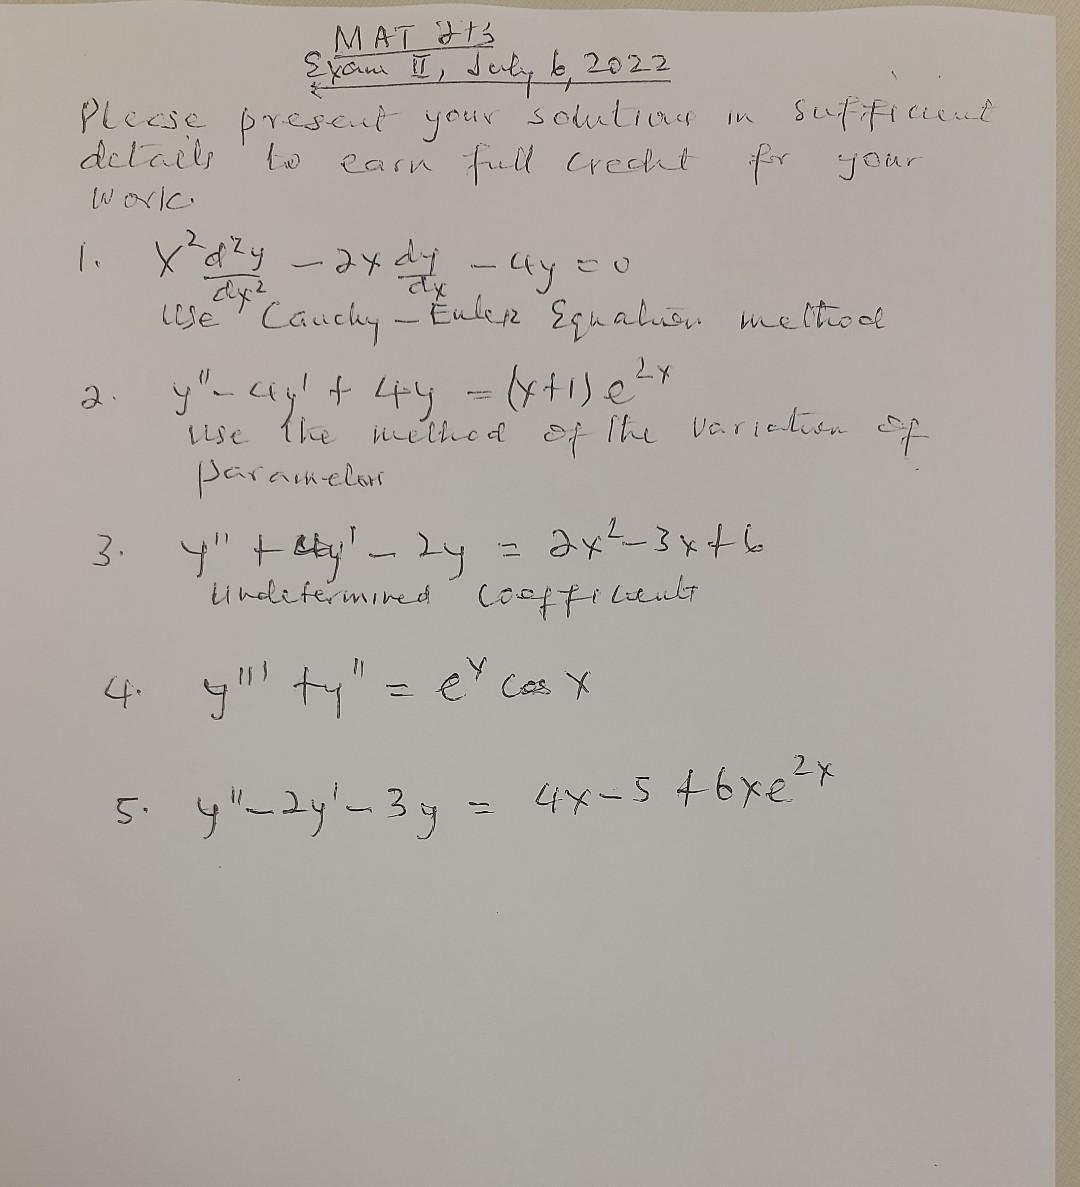 MAT 273
Exam II, July 6, 2022
Please present your solutions in sufficient
details to earn full credit for your
work.
1. x² d²y/dx² - 2x dy/dx - 4y = 0
Use Cauchy-Euler Equation method
2. y'' - 4y' + 4y = (x+1)e^{2x}
Use the method of the variation of
parameters
3. y'' + 4y' - 2y = 2x² - 3x + 6
Undetermined coefficient
4. y''' + y'' = e^x cos x
5. y'' - 2y' - 3y = 4x - 5 + 6xe^{2x}